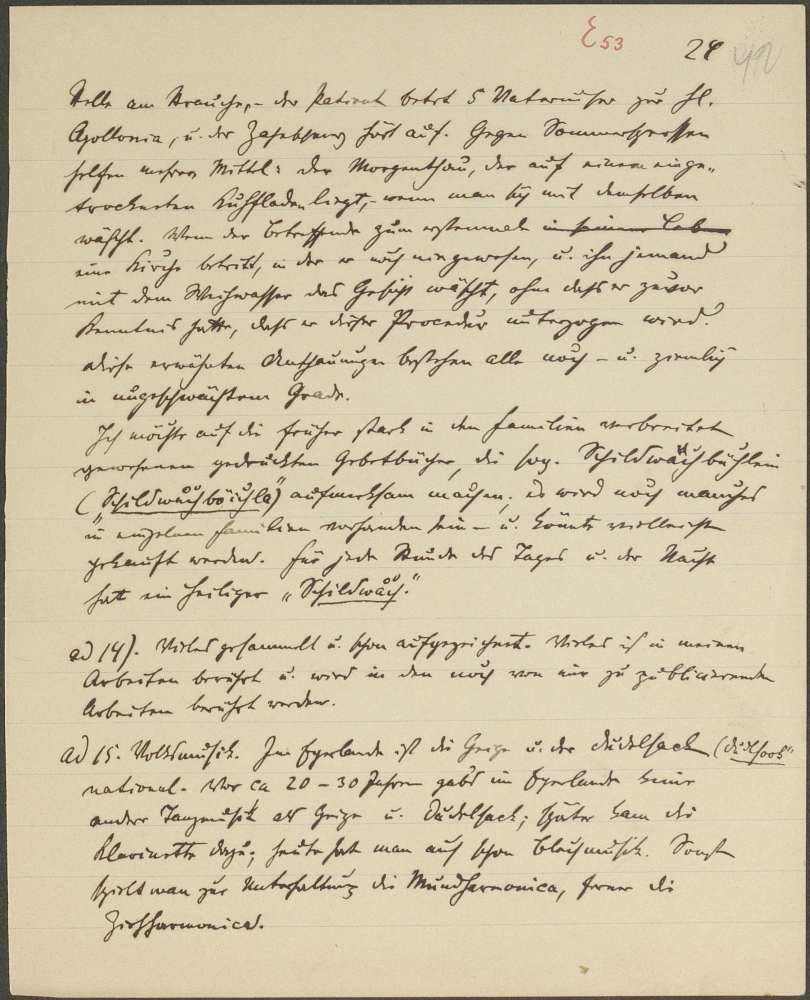 E53 24 42
Stelle am Strauche, – der Patient betet 5 Vaterunser zur hl.
Apollonia, u. der Zahnschmerz hört auf. Gegen Sommersprossen
helfen mehrere Mittel: der Morgenthau, der auf einem einge-
trockneten Kuhfladen liegt, – wenn man sich mit demselben
wäscht. Wenn der Betreffende zum erstenmale in seinem Leb
eine Kirche betritt, in der er noch nie gewesen, u. ihn jemand
mit dem Weihwasser das Gesicht wäscht, ohne dass er zuvor
Kenntnis hatte, dass er dieser Procedur unterzogen wird.
Diese erwähnten Anschauungen bestehen alle noch – u. ziemlich
in ungeschwächtem Grade.
Ich möchte auf die früher stark in den Familien verbreitet
gewesenen gedruckten Gebetbücher, die sog. Schildwachbüchlein
("Schildwåchböichla") aufmerksam machen; es wird noch manches
in einzelnen Familien vorhanden sein – u. könnte vielleicht
gekauft werden. Für jede Stunde des Tages u. der Nacht
hat ein Heiliger "Schildwåch."
ad 14). Vieles gesammelt u. schon aufgezeichnet. Vieles ist in meinen
Arbeiten berührt u. wird in den noch von mir zu publicierenden
Arbeiten berührt werden.
ad 15. Volksmusik. Im Egerlande ist die Geige u. der Dudelsack ("Du'lsook"
national. Vor ca 20 – 30 Jahren gab's im Egerlande keine
andere Tanzmusik als Geige u. Dudelsack; später kam die
Klarinette dazu; heute hat man auch schon Blechmusik. Sonst
spielt man zur Unterhaltung die Mundharmonica, ferner die
Ziehharmonica.